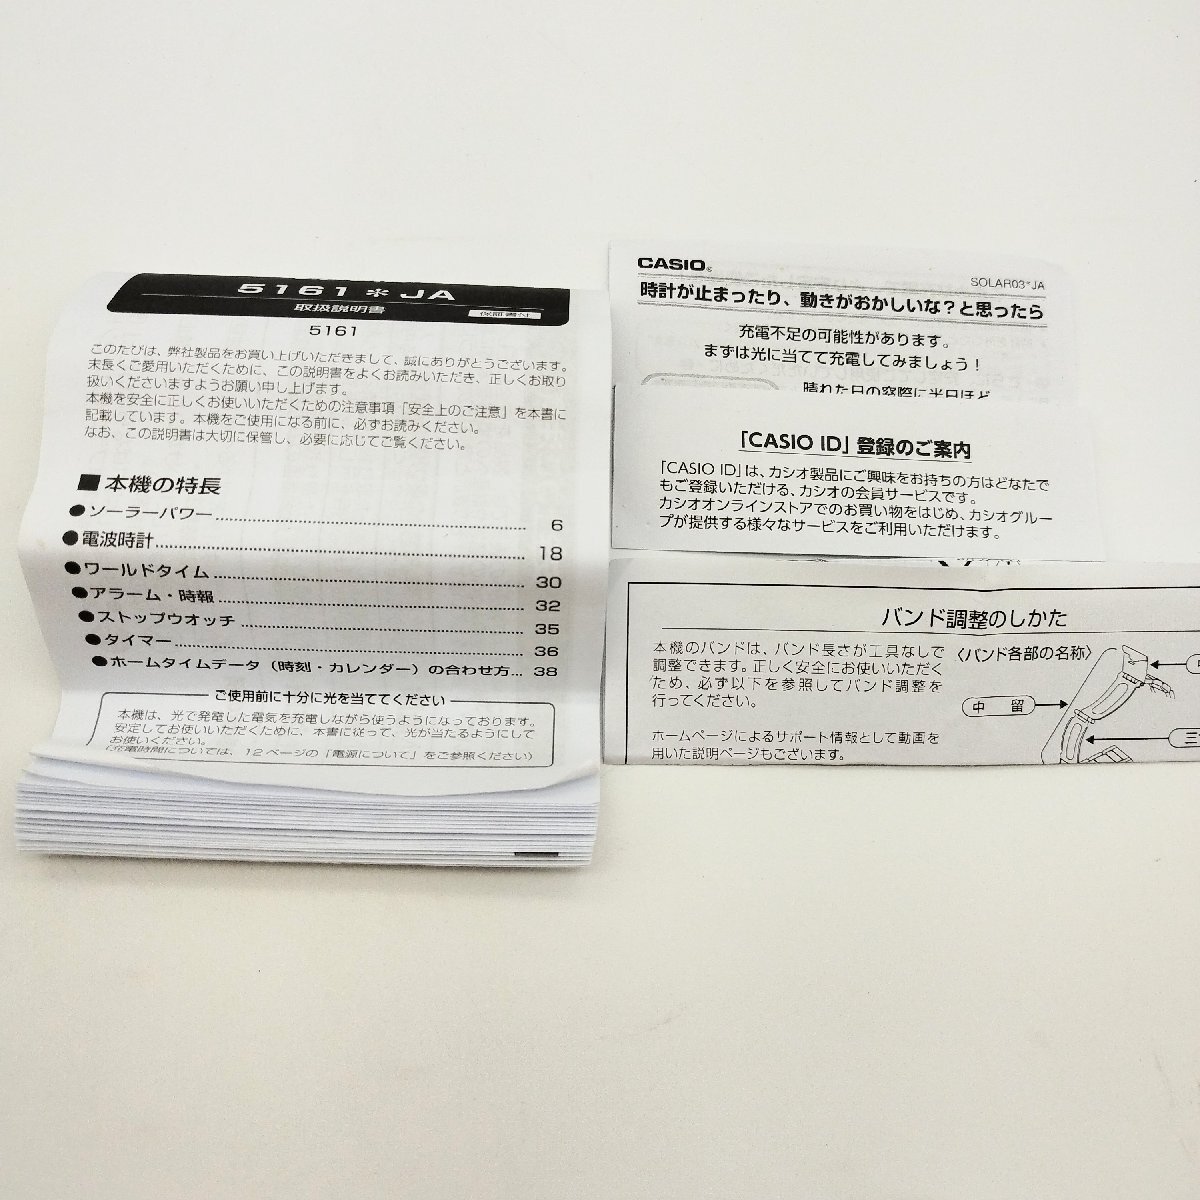 5161＊JA
取扱説明書
保証書付
5161
このたびは、弊社製品をお買い上げいただきまして、誠にありがとうございます。
末長くご愛用いただくために、この説明書をよくお読みいただき、正しくお取り
扱いくださいますようお願い申し上げます。
本機を安全に正しくお使いいただくための注意事項「安全上のご注意」を本書に
記載しています。本機をご使用になる前に、必ずお読みください。
なお、この説明書は大切に保管し、必要に応じてご覧ください。
■本機の特長
●ソーラーパワー 6
●電波時計 18
●ワールドタイム 30
●アラーム・時報 32
●ストップウオッチ 35
●タイマー 36
●ホームタイムデータ（時刻・カレンダー）の合わせ方... 38
ご使用前に十分に光を当ててください
本機は、光で発電した電気を充電しながら使うようになっております。
安定してお使いいただくために、本書に従って、光が当たるようにして
お使いください。
（充電時間については、12ページの「電源について」をご参照ください）
CASIO®
SOLAR03*JA
時計が止まったり、動きがおかしいな？と思ったら
充電不足の可能性があります。
まずは光に当てて充電してみましょう！
晴れた日の窓際に半日ほど
「CASIO ID」登録のご案内
「CASIO ID」は、カシオ製品にご興味をお持ちの方はどなたで
もご登録いただける、カシオの会員サービスです。
カシオオンラインストアでのお買い物をはじめ、カシオグルー
プが提供する様々なサービスをご利用いただけます。
バンド調整のしかた
本機のバンドは、バンド長さが工具なしで
調整できます。正しく安全にお使いいただく
ため、必ず以下を参照してバンド調整を
行ってください。
ホームページによるサポート情報として動画を
用いた説明ページもございます。
〈バンド各部の名称〉
中 留
三